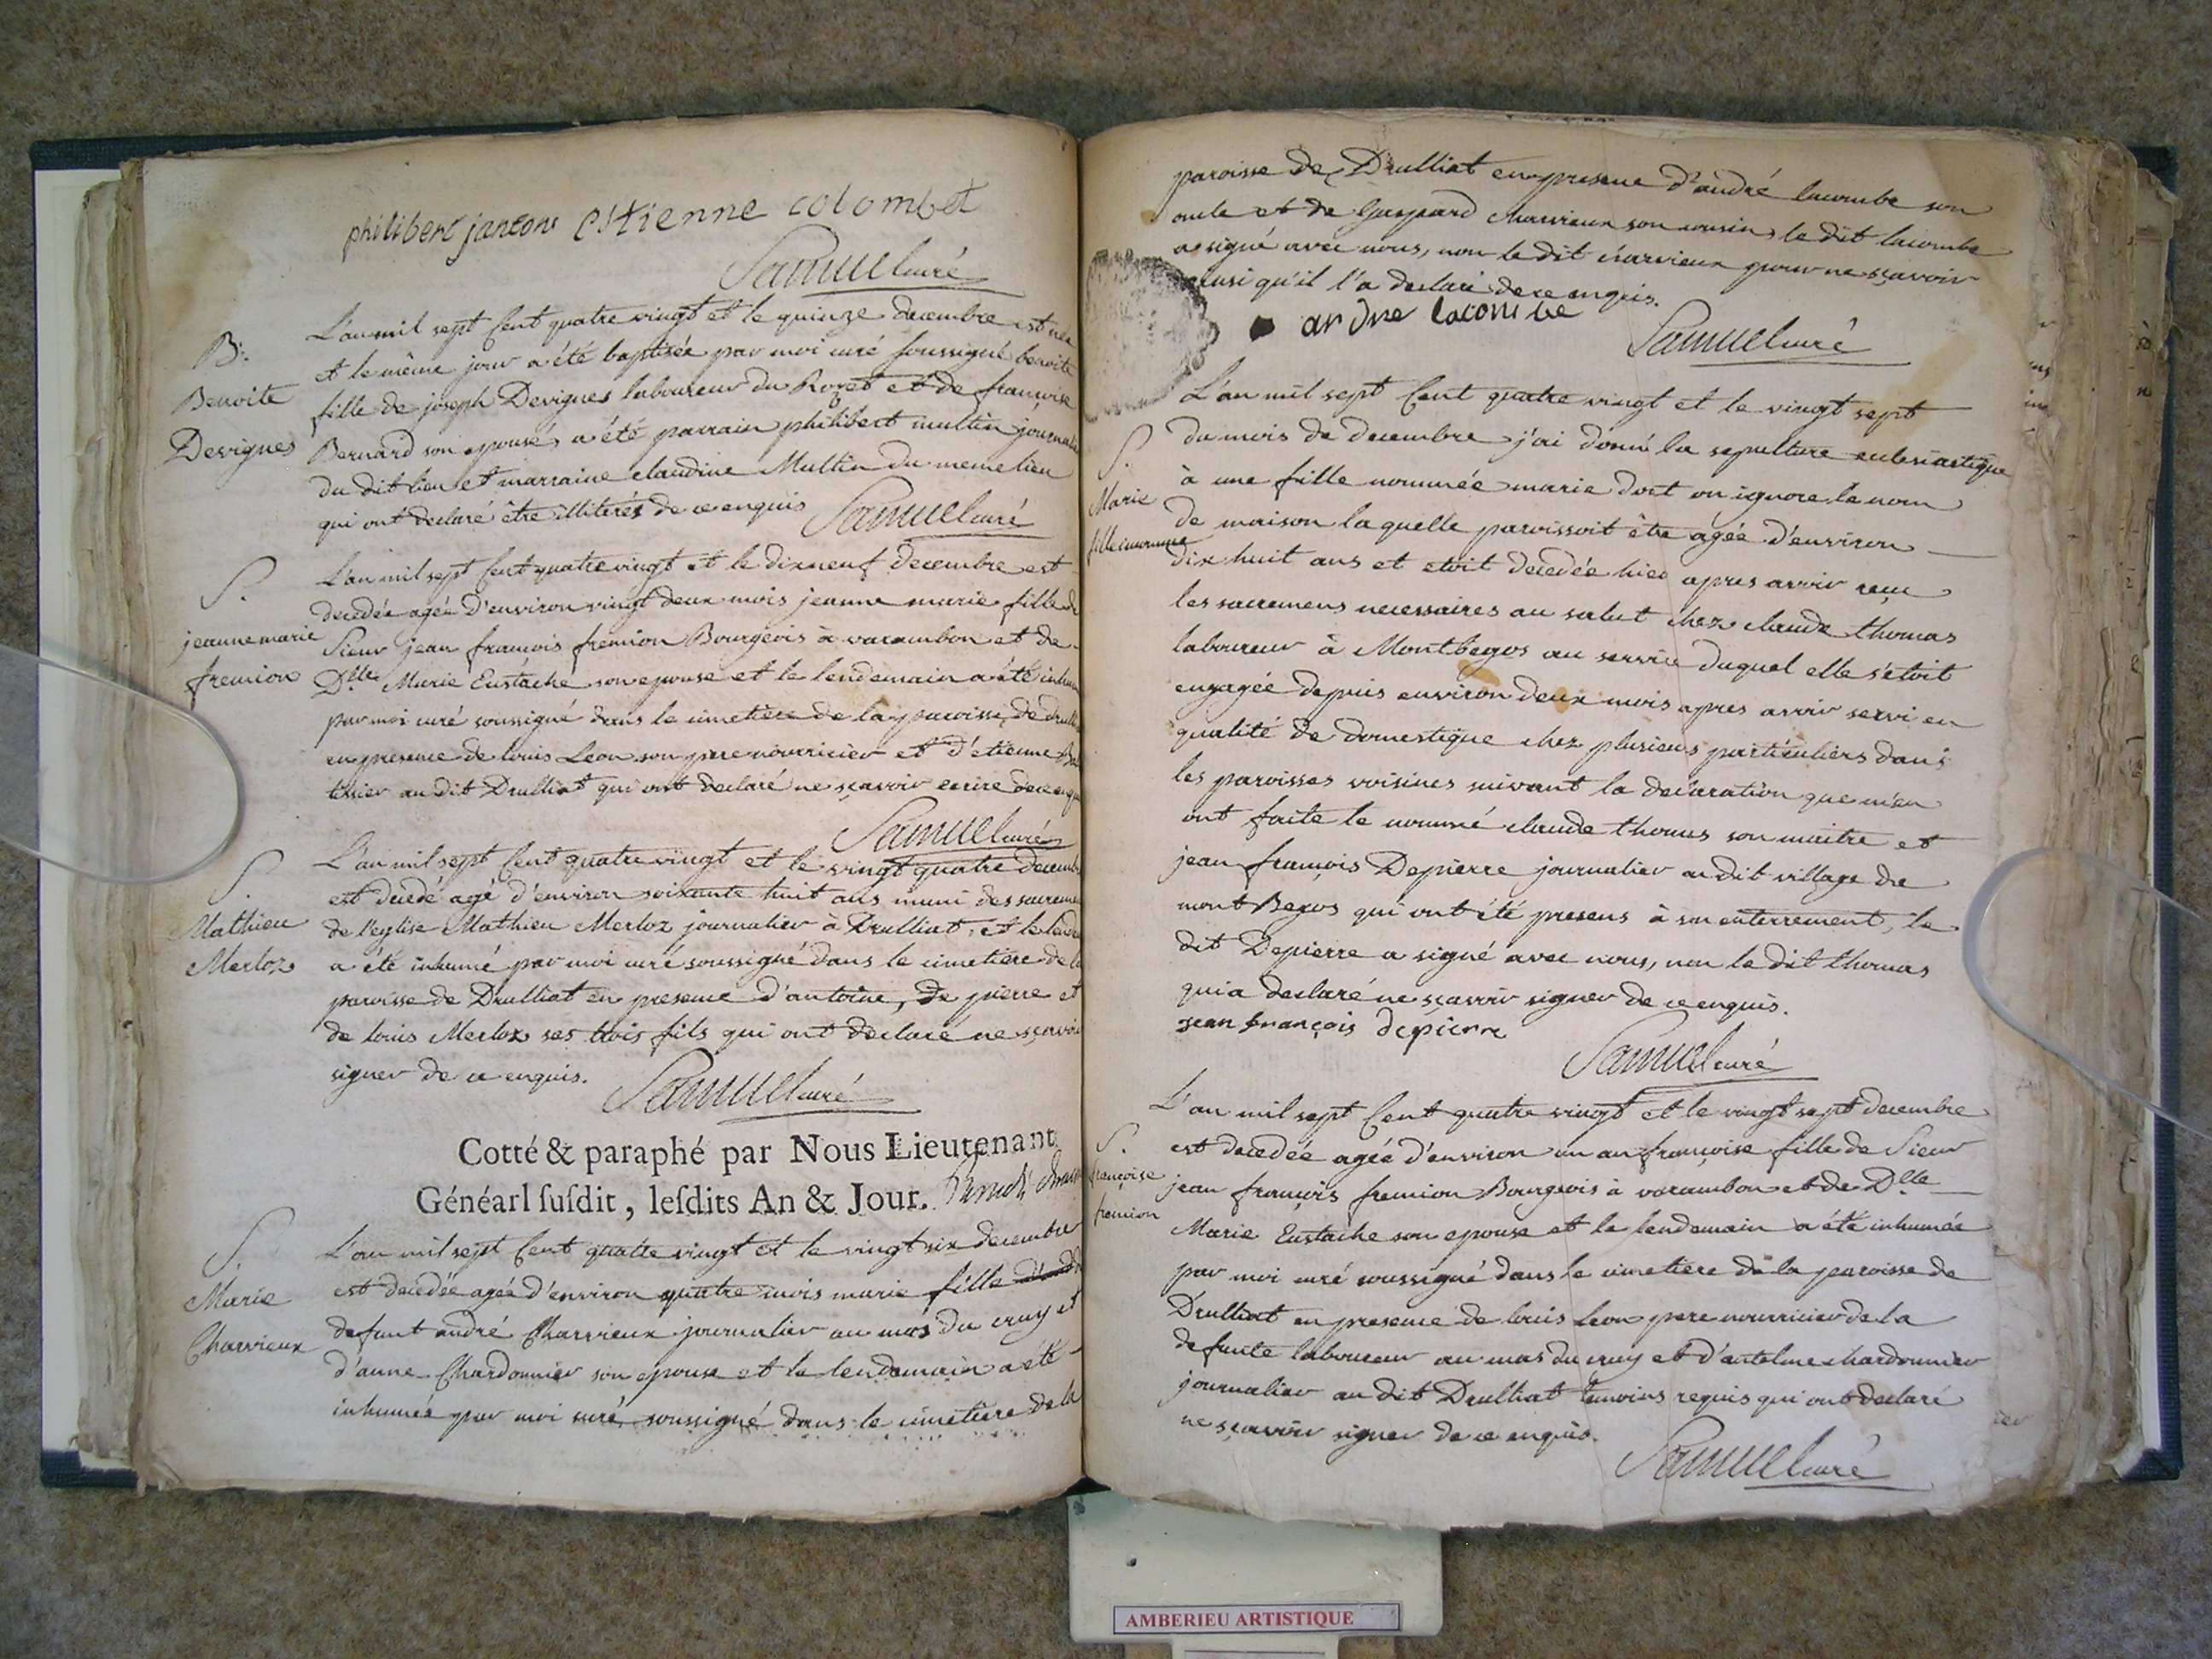 philibert janton Estienne colombet
Samuel curé
L'an mil sept Cent quatre vingt et le quinze decembre est née
et le même jour a été baptisée par moi curé soussigné benoite
fille de joseph Devignes laboureur du Rozet et de françoise
Bernard son epouse, a été parrain philibert multin journalier
du dit lieu et marraine claudine Multin du meme lieu
qui ont declaré être illiterés de ce enquis Samuel curé
B.
Benoite
Devignes
L'an mil sept Cent quatre vingt et le dix neuf Decembre est
decedée agée d'environ vingt deux mois jeanne marie fille de
Sieur jean francois fremion Bourgeois à varambon et de
Dlle Marie Eustache son epouse et le lendemain a été inhumé
par moi curé soussigné dans le cimetière de la paroisse de
en presence de louis Leon son pere nourricier et d'etienne
tissier au dit Drulliat qui ont declaré ne sçavoir ecrire de ce enquis
Samuel curé
S.
jeanne marie
fremion
L'an mil sept Cent quatre vingt et le vingt quatre decembre
est decedé agé d'environ soixante huit ans muni des sacremens
de l'eglise Mathieu Merloz journalier à Drulliat, et le
a été inhumé par moi curé soussigné dans le cimetière de la
paroisse de Drulliat en presence d'antoine, de pierre et
de louis Merloz ses trois fils qui ont declaré ne sçavoir
signer de ce enquis. Samuel curé
S.
Mathieu
Merloz
Cotté & paraphé par Nous Lieutenant
Généarl susdit, lesdits An & Jour.
L'an mil sept Cent quatre vingt et le vingt six decembre
est decedée agée d'environ quatre mois marie fille
defunt andré Charvieux journalier au mas du cruy et
d'anne Chardonnier son epouse et le lendemain a été
inhumée par moi curé soussigné dans le cimetière de la
S.
Marie
Charvieux
paroisse de Drulliat en presence d'andré lacombe son
oncle et de Gaspard charvieux son cousin, le dit lacombe
a signé avec nous, non le dit charvieux pour ne sçavoir
ainsi qu'il l'a declaré de ce enquis.
andre lacombe
Samuel curé
L'an mil sept Cent quatre vingt et le vingt sept
du mois de decembre j'ai donné la sepulture eclesiastique
à une fille nommée marie dont on ignore le nom
de maison laquelle paroissoit être agée d'environ
dix huit ans et etoit decedée hier apres avoir reçu
les sacremens necessaires au salut chez claude thomas
laboureur à Montbegos au service duquel elle s'etoit
engagée depuis environ deux mois apres avoir servi en
qualité de domestique chez plusieurs particuliers dans
les paroisses voisines suivant la declaration que m'en
ont faite le nommé claude thomas son maitre et
jean francois Depierre journalier au dit village de
mont Begos qui ont été presens à son enterrement, le
dit Depierre a signé avec nous, non le dit thomas
qui a declaré ne sçavoir signer de ce enquis.
jean françois depierre
Samuel curé
S.
Marie
fille inconnue
L'an mil sept Cent quatre vingt et le vingt sept decembre
est decedée agée d'environ un an françoise fille de Sieur
jean françois fremion Bourgeois à varambon et de Dlle
Marie Eustache son epouse et le lendemain a été inhumée
par moi curé soussigné dans le cimetière de la paroisse de
Drulliat en presence de louis Leon pere nourricier de la
defunte laboureur au mas du cruy et d'antelme chardonnier
journalier au dit Drulliat temoins requis qui ont declaré
ne sçavoir signer de ce enquis.
Samuel curé
S.
françoise
fremion
AMBERIEU ARTISTIQUE